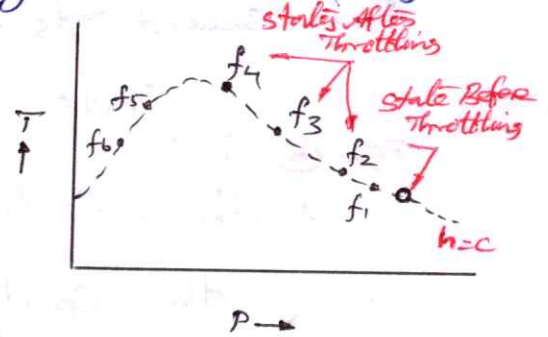 states After
Throttling
f4
state Before
Throttling
f5
f3
T
f6
f2
f1
h=c
P